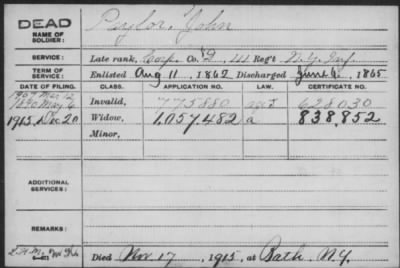 DEAD
Paylor, John
NAME OF SOLDIER:
SERVICE: Late rank, Corp. Co. D, 111 Reg't N.Y. Inf.
TERM OF SERVICE: Enlisted Aug 11, 1862 Discharged June 6, 1865
DATE OF FILING. CLASS. APPLICATION NO. LAW. CERTIFICATE NO.
1890 May 6 Invalid, 775880 628030
1915. Dec 20 Widow, 1,057,482 a 838,852
Minor,
ADDITIONAL SERVICES:
REMARKS:
Died Nov. 17, 1915, at Bath, N.Y.